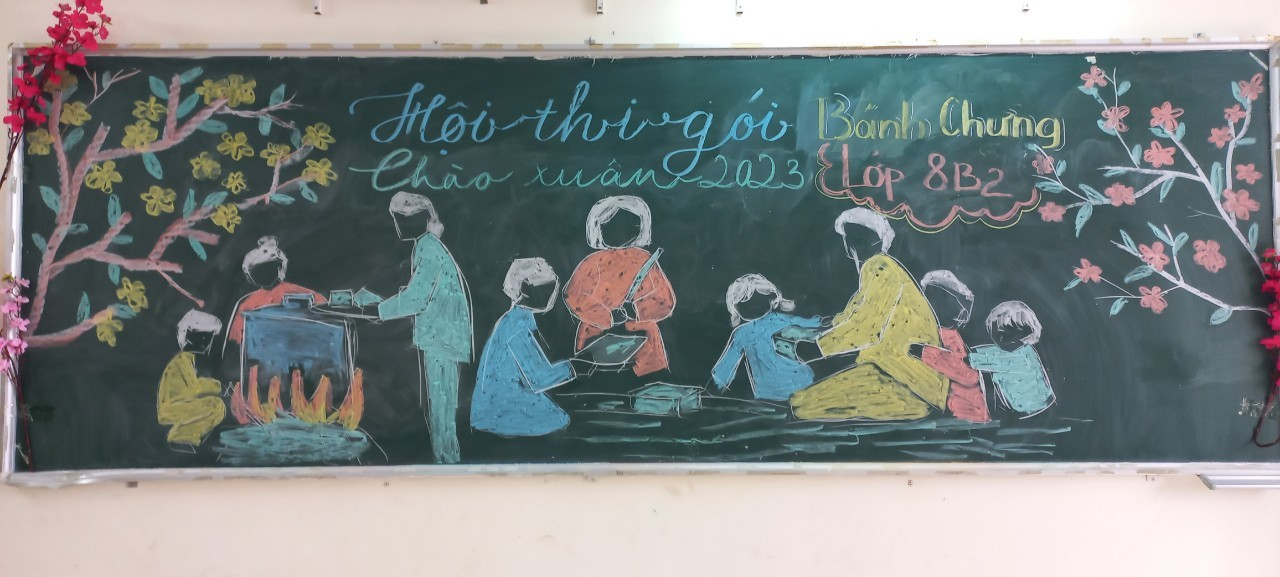 Hội thi gói Bánh Chưng
Chào xuân 2023
Lớp 8B2